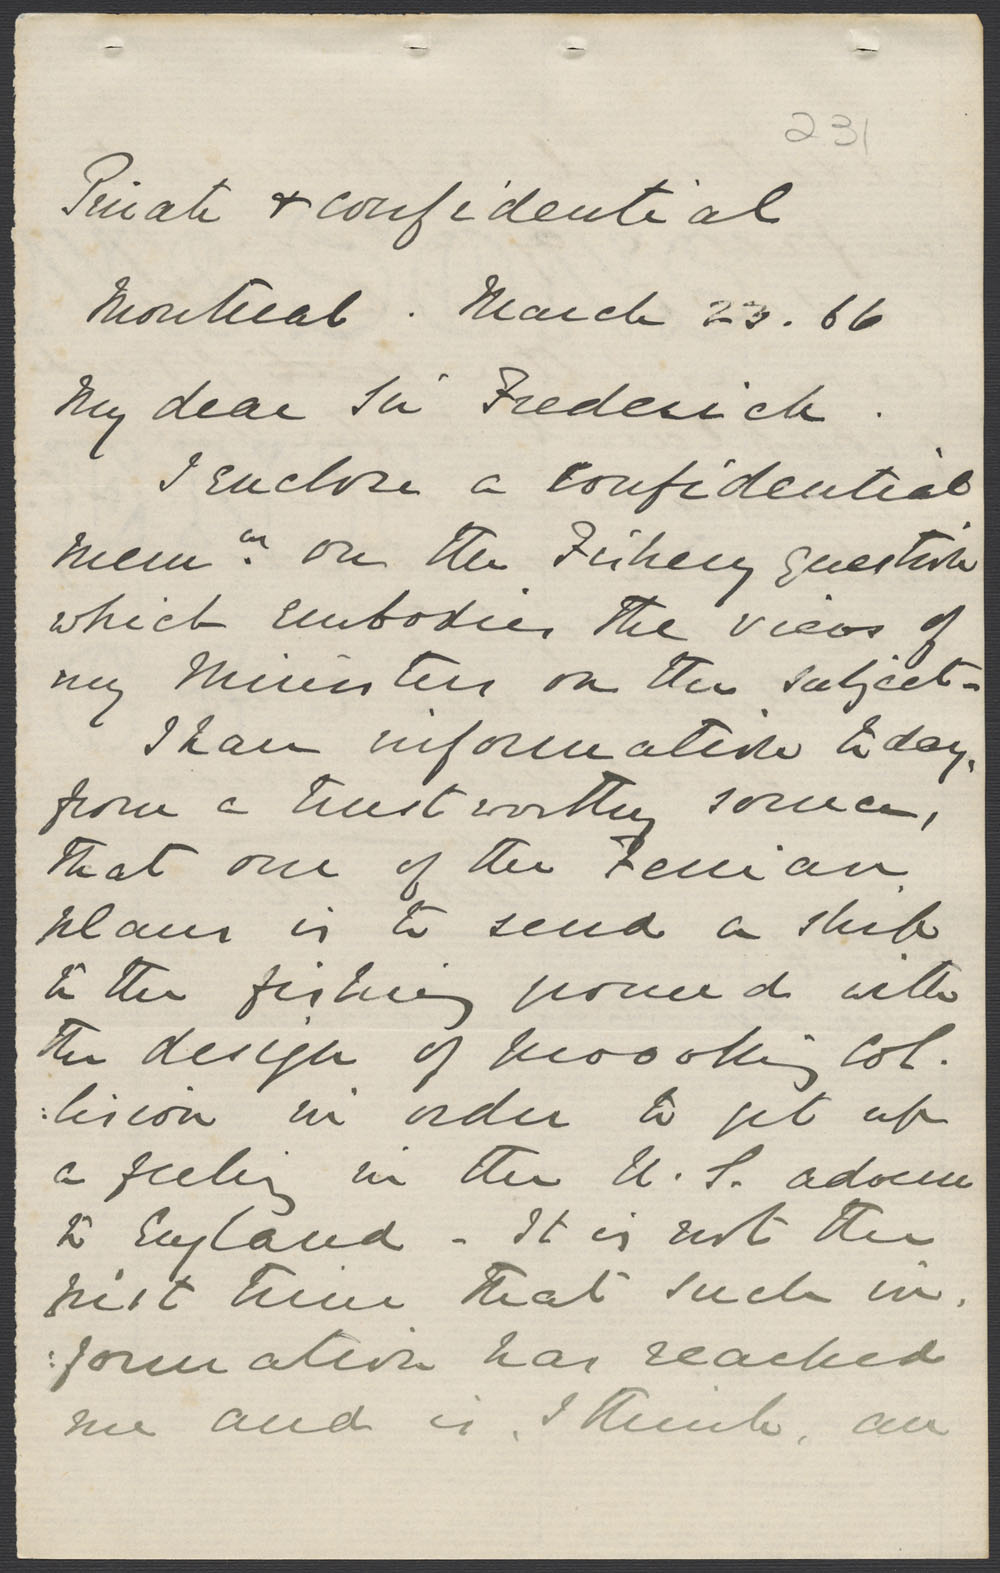 231
Private & confidential
Montreal. March 23. 66
My dear Sir Frederick.
I enclose a confidential
Memn. on the Fishery question
which embodies the views of
my Ministers on the subject-
I have information to day,
from a trustworthy source,
that one of the Fenian
plans is to send a ship
to the fishing ground with
the design of provoking Col-
:lision in order to get up
a feeling in the U. S. adverse
to England - It is not the
first time that such in-
:formation has reached
me and is, I think, an